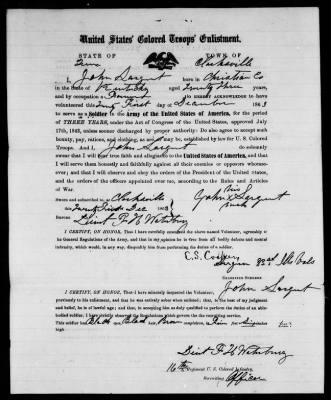 United States' Colored Troops' Enlistment.
STATE OF TOWN OF
Tenn Clarksville
I, John Sargent born in Christian Co
in the State of Kentucky aged Twenty Three years,
and by occupation a Farmer DO HEREBY ACKNOWLEDGE to have
volunteered this Twenty First day of December 1863
to serve as a Soldier in the Army of the United States of America, for the period
of THREE YEARS, under the Act of Congress of the United States, approved July
17th, 1862, unless sooner discharged by proper authority: Do also agree to accept such
bounty, pay, rations, and clothing, as are, or may be, established by law for U. S. Colored
Troops. And I, John Sargent do solemnly
swear that I will bear true faith and allegiance to the United States of America, and that
I will serve them honestly and faithfully against all their enemies or opposers whomso-
ever; and that I will observe and obey the orders of the President of the United States,
and the orders of the officers appointed over me, according to the Rules and Articles
of War.
Sworn and subscribed to, at Clarksville his
this Twenty First Dec 1863 John X Sargent
BEFORE mark
Lieut F. H.
I CERTIFY, ON HONOR, That I have carefully examined the above named Volunteer, agreeably to
the General Regulations of the Army, and that in my opinion he is free from all bodily defects and mental
infirmity, which would, in any way, disqualify him from performing the duties of a soldier.
C. S.
Surgeon 83rd Ills Vols
EXAMINING SURGEON
John Sargent
I CERTIFY, ON HONOR, That I have minutely inspected the Volunteer,
previously to his enlistment, and that he was entirely sober when enlisted; that, to the best of my judgment
and belief, he is of lawful age; and that, in accepting him as duly qualified to perform the duties of an able-
bodied soldier, I have strictly observed the Regulations which govern the recruiting service.
This soldier has Black eyes, Black hair, complexion, is Five feet inches high.
Lieut F H
16th Regiment U. S. Colored Infantry,
Recruiting Officer